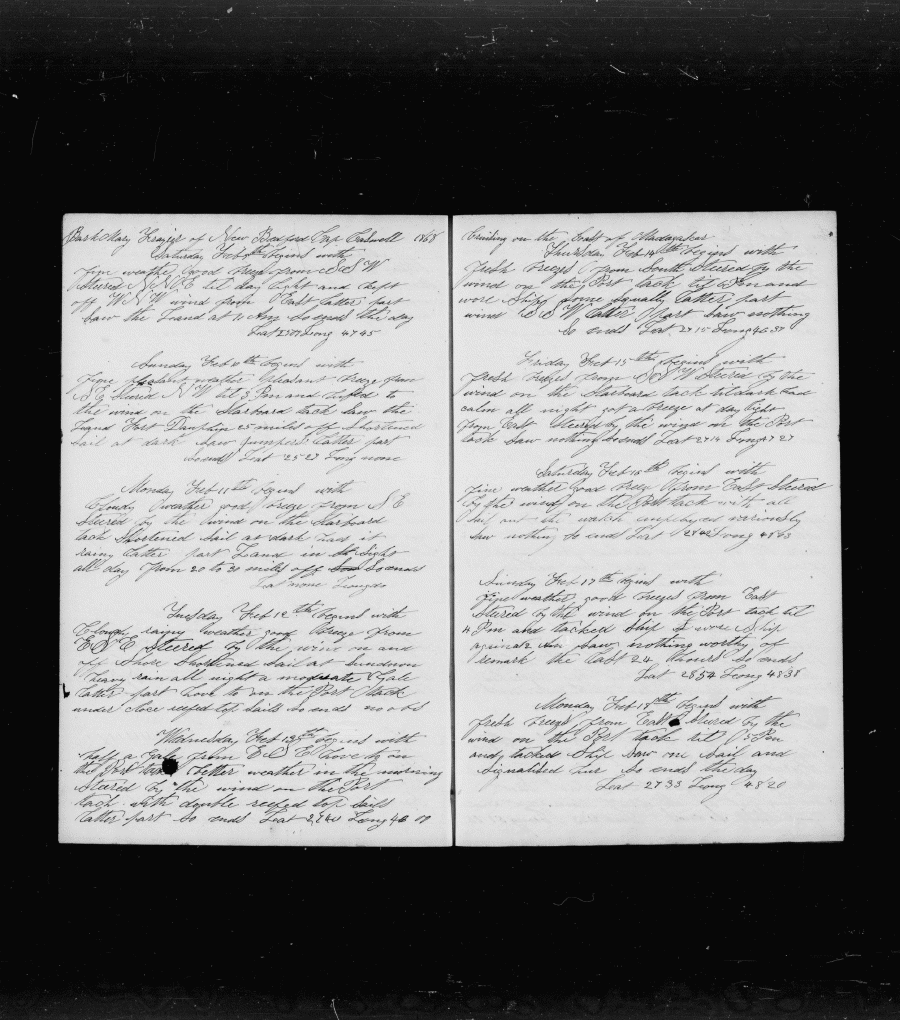 Bark Mary Frazier of New Bedford Cap Cadwell 1868
Saturday Feb begins with
fine weather good breeze from SSW
Steered NNE til day light and kept
off WNW wind from East Latter part
Saw the Land at 10 Am So ends the day
Lat Long 47 45
Sunday Feb begins with
fine pleasant weather pleasant breeze from
SE Steered NW til 3 Pm and to
the wind on the Starboard tack Saw the
Land Fort Dauphin 25 miles off Shortened
Sail at dark Saw jumpers Latter part
So ends Lat 25 27 Long none
Monday Feb 11th begins with
Cloudy weather good breeze from SE
Steered by the wind on the Starboard
tack Shortened Sail at dark had it
rainy Latter part Land in Sight
all day from 20 to 30 miles off So ends
Lat none Long do
Tuesday Feb 12th begins with
rainy weather good breeze from
ESE Steered by the wind on and
off Shore Shortened Sail at Sundown
heavy rain all night a moderate Gale
Latter part hove to on the Port tack
under close reefed top Sails So ends no obs
Wednesday Feb 13th begins with
half a Gale from ESE hove to on
the Port tack better weather in the morning
Steered by the wind on the Port
tack with double reefed top Sails
Latter part So ends Lat Long 46 00
Cruising on the East of Madagaskar
Thursday Feb 14th begins with
fresh breeze from South Steered by the
wind on the Port tack til 6 Pm and
wore Ship Some Squally Latter part
wind SSW Latter Part Saw nothing
So ends Lat 27 15 Long 46 57
Friday Feb 15th begins with
fresh breeze from SSW Steered by the
wind on the Starboard tack til dark had
calm all night got a breeze at day light
from East Steered by the wind on the Port
tack Saw nothing So ends Lat 27 14 Long 47 27
Saturday Feb 16th begins with
fine weather good breeze from East Steered
by the wind on the Port tack with all
Sail out the watch employed variously
Saw nothing So ends Lat Long
Sunday Feb 17th begins with
fine weather good breezes from East
Steered by the wind on the Port tack til
4 Pm and tacked Ship & wore Ship
again 2 Am Saw nothing worthy of
remark the Last 24 hours So ends
Lat 28 54 Long 48 38
Monday Feb 18th begins with
fresh breeze from East Steered by the
wind on the Port tack til 5 Pm
and tacked Ship Saw on Sail and
Signalised her So ends the day
Lat 27 33 Long 48 20